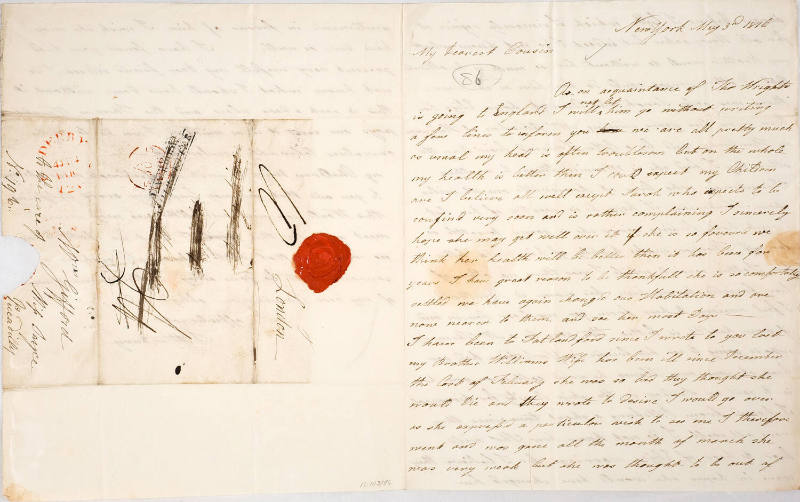 New York May 3d
My Dearest Cousin
93
As an acquaintance of Tho Wrights
is going to England I will not let him go without writing
a few lines to inform you we are all pretty much
as usual my head is often troublesom but on the whole
my health is better then I could expect my Children
are I believe all well except Sarah who expects to be
confind very soon and is rather complaining I sincerely
hope she may get well over it if she is so favourd we
think her health will be better then it has been for
years I have great reason to be thankfull she is so comfortably
settled we have again changd our Habitation and are
now nearer to them and see her most Days
I have been to Fatlandford since I wrote to you last
my Brother Williams Wife has been ill since December
the last of February she was so bad they thought she
would Die and they wrote to desire I would go over
as she expressd a particular wish to see me I therefore
went and was gone all the month of march she
was very weak but she was thought to be out of
DERBY
Mrs Gifford
No 196
Piccadilly
London